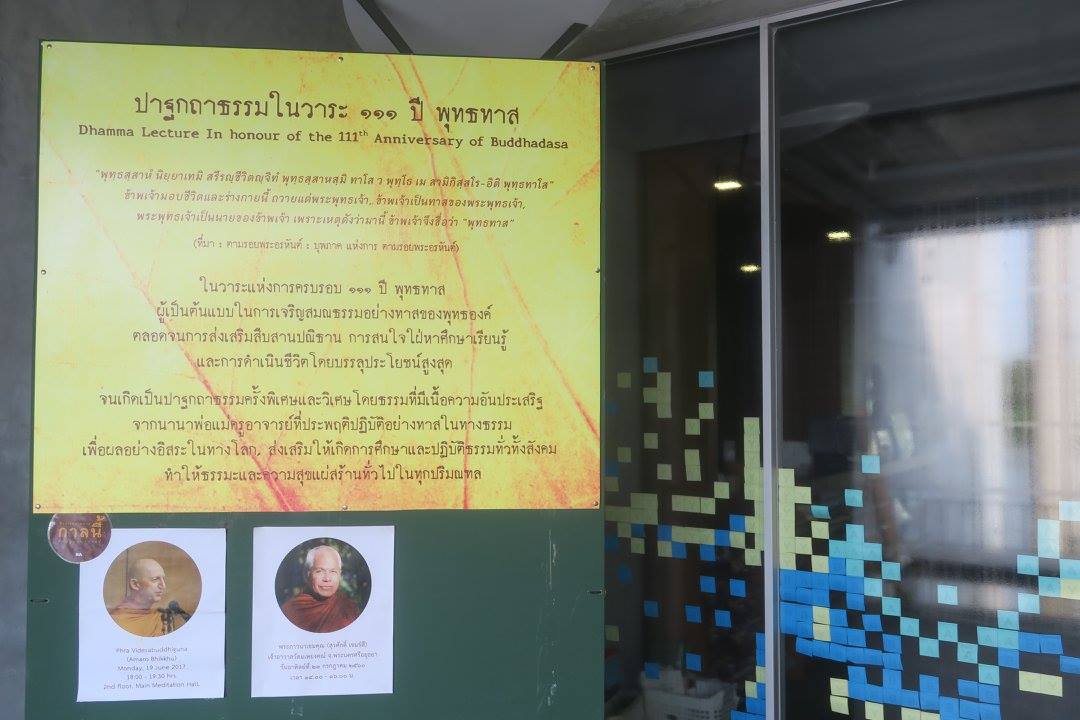 ปาฐกถาธรรมในวาระ ๑๑๑ ปี พุทธทาส
Dhamma Lecture In honour of the 111th Anniversary of Buddhadasa
"พุทธสฺสาหํ นิยฺยาเทมิ สรีรญฺชีวิตญฺจิทํ พุทธสฺสาหสฺมิ ทาโส ว พุทฺโธ เม สามิกิสฺสโร-อิติ พุทธทาโส"
ข้าพเจ้ามอบชีวิตและร่างกายนี้ ถวายแด่พระพุทธเจ้า, ข้าพเจ้าเป็นทาสของพระพุทธเจ้า,
พระพุทธเจ้าเป็นนายของข้าพเจ้า เพราะเหตุดังว่ามานี้ ข้าพเจ้าจึงชื่อว่า "พุทธทาส"
(ที่มา : ตามรอยพระอรหันต์ : บุพภาค แห่งการ ตามรอยพระอรหันต์)
ในวาระแห่งการครบรอบ ๑๑๑ ปี พุทธทาส
ผู้เป็นต้นแบบในการเจริญสมณธรรมอย่างทาสของพุทธองค์
ตลอดจนการส่งเสริมสืบสานปณิธาน การสนใจใฝ่หาศึกษาเรียนรู้
และการดำเนินชีวิตโดยบรรลุประโยชน์สูงสุด
จนเกิดเป็นปาฐกถาธรรมครั้งพิเศษและวิเศษ โดยธรรมที่มีเนื้อความอันประเสริฐ
จากนานาพ่อแม่ครูอาจารย์ที่ประพฤติปฏิบัติอย่างทาสในทางธรรม
เพื่อผลอย่างอิสระในทางโลก, ส่งเสริมให้เกิดการศึกษาและปฏิบัติธรรมทั่วทั้งสังคม
ทำให้ธรรมะและความสุขแผ่สร้านทั่วไปในทุกปริมณฑล
กาลนี้
Phra Videsabuddhiguna
(Amaro Bhikkhu)
Monday, 19 June 2017
18:00 - 19:30 hrs.
2nd floor, Main Meditation Hall.
พระภาวนาเขมคุณ (สุรศักดิ์ เขมรํสี)
เจ้าอาวาสวัดมเหยงคณ์ จ.พระนครศรีอยุธยา
วันอาทิตย์ที่ ๒๓ กรกฎาคม ๒๕๖๐
เวลา ๑๔.๐๐ - ๑๖.๐๐ น.